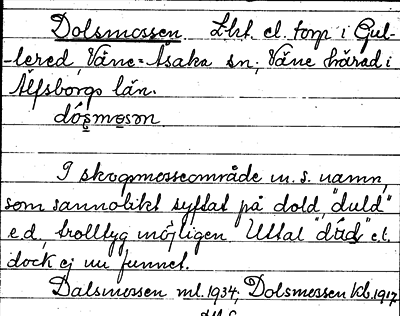 Dolsmossen. Lht. el. torp i Gul-
-lered, Väne-Åsaka sn, Väne härad i
Älfsborgs län.
dósmosən
I skogsmosseområde m. s. namn,
som sannolikt syftat på dold, "duld"
e.d., trolltyg möjligen. Uttal el.
dock ej nu funnet.
Dalsmossen ml. 1934, Dolsmossen kb. 1917